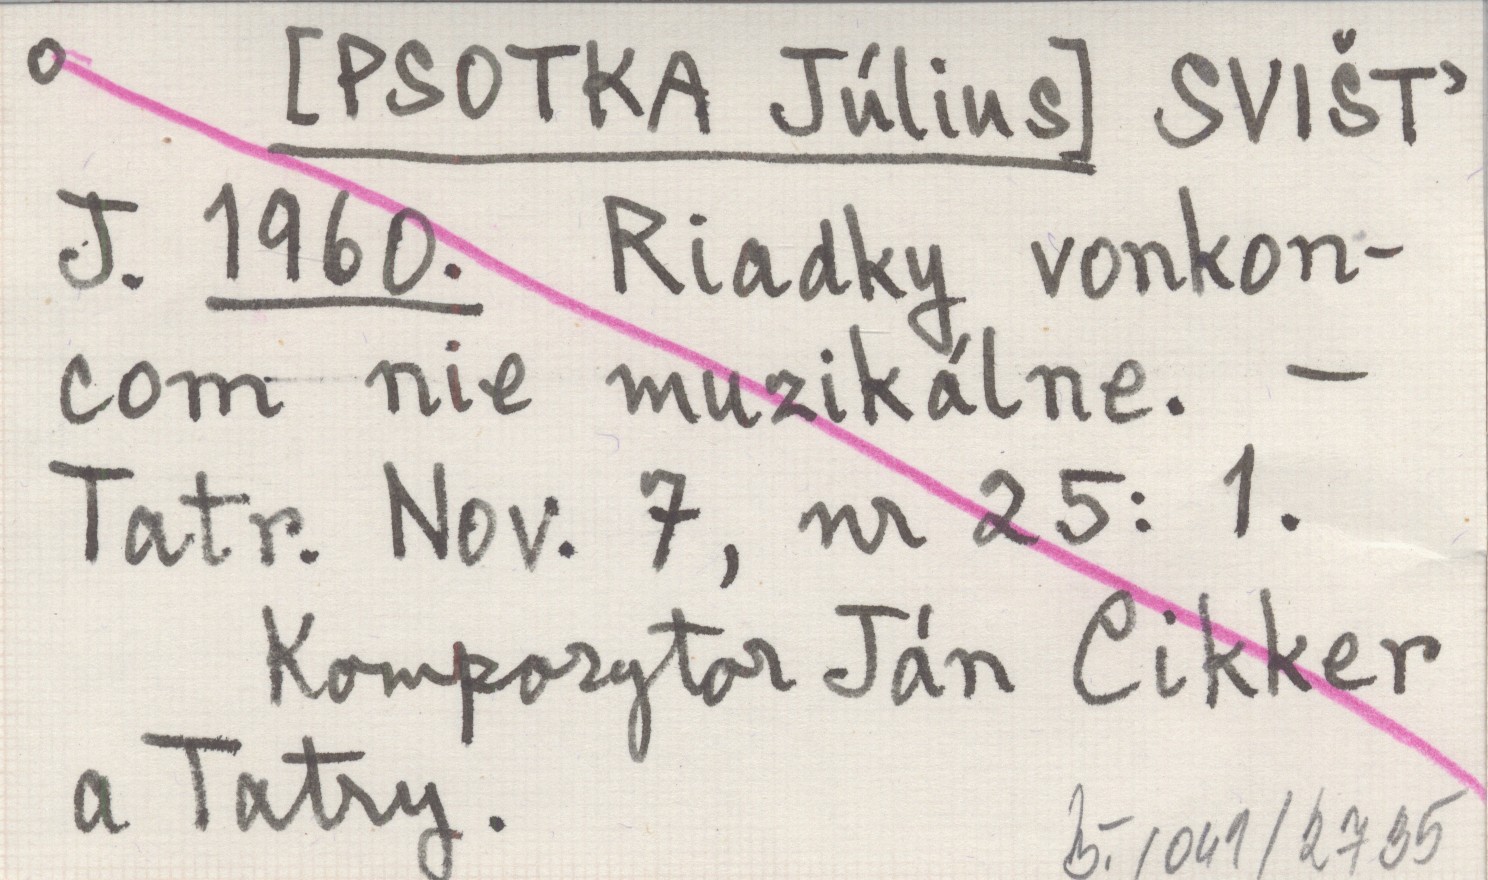 o [PSOTKA Július] SVIŠŤ
J. 1960. Riadky vonkon-
com nie muzikálne. —
Tatr. Nov. 7, nr 25: 1.
Kompozytor Ján Cikker
a Tatry.
/2735